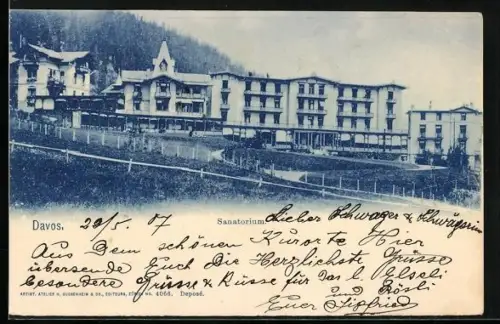 Davos. 20/5. 07
Sanatorium
Lieber Schwager & Schwägerin
Aus Dem schönen Kurorte Hier
übersende Euch Die Herzlichste Grüsse
besondere Grüsse & Küsse für Das l. Elseli
und Rösli
Euer Sigfried
ARTIST. ATELIER H. GUGGENHEIM & CO., EDITEURS, ZÜRICH No. 4066. Deposé.